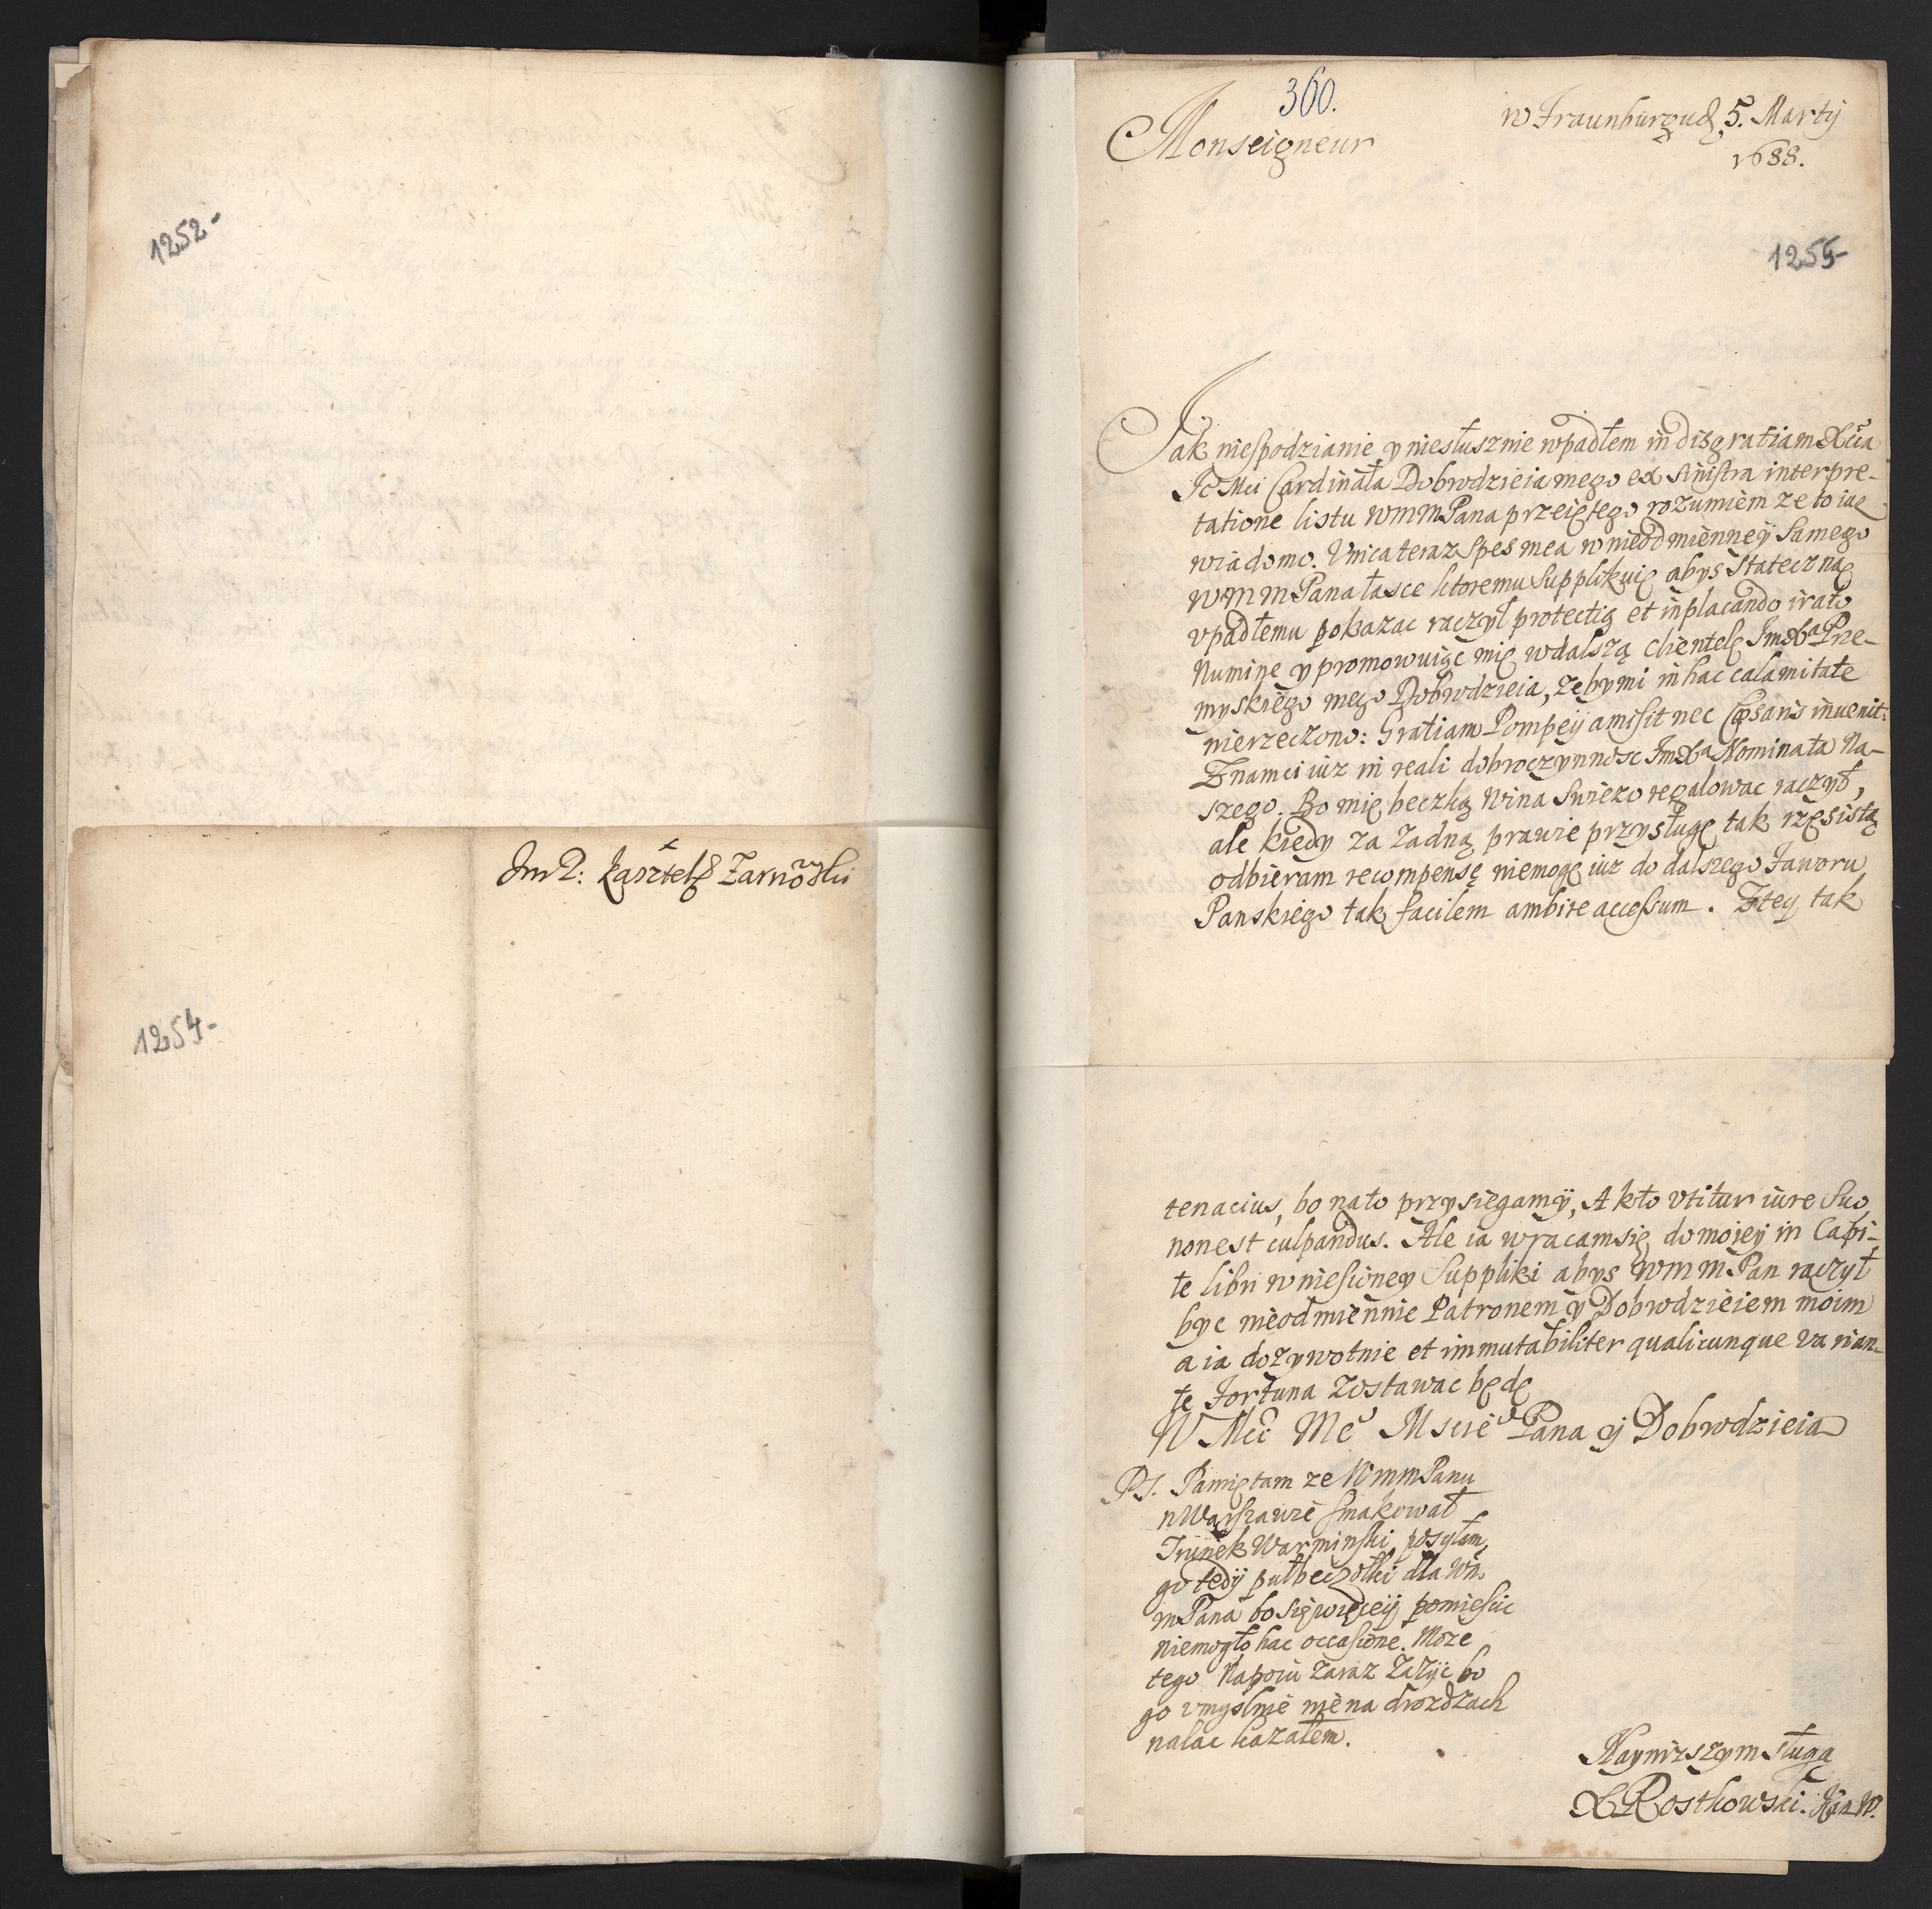 1252-
Jmp: Kasztel Zarno
1254-
360.
w Fraunburgu d. 5. Martij
1688.
Monseigneur
1255-
Jak niespodzianie y niesłusznie wpadłem in disgratiam Xcia
Jc Mci Cardinała Dobrodzieia mego ex sinistra interpre-
tatione listu WMMPana przeiętego rozumiem ze to iuz
wiadomo. Vnica teraz spes mea w nieodmienneÿ samego
WMMPana łasce ktoremu supplikuię abys stateczną
vpadłemu pokazac raczył protectią et in placando irato
Numine y promowuiąc mię w dalszą clientelę JmXa Prze-
myskiego mego Dobrodzieia, zeby mi in hac calamitate
nierzeczono: Gratiam Pompeij amisit nec Cæsaris inuenit.
Znam ci iuz in reali dobroczynnosc JmXa Nominata Na-
szego. Bo mię beczką wina swiezo regalowac raczył,
ale kiedy za zadną prawie przysługę tak rzęsistą
odbieram recompensę niemogę iuz do dalszego Faworu
Panskiego tak facilem ambire accessum. Ztey tak
tenacius, bo nato przysiegamÿ, A kto vtitur iure suo
non est culpandus. Ale ia wracam się do moiey in Capi-
te libri wniesioney suppliki abys WMMPan raczył
byc nieodmiennie Patronem y Dobrodzieiem moim
a ia dozywotnie et immutabiliter qualicunque varian-
te Fortuna zostawac będę
WMci Me° Mscie° Pana ÿ Dobrodzieia
PS. Pamiętam ze WMMPanu
w Warszawie smakował
Trunek Warminski, posyłam
go tedÿ pułbeczołki dla WM
MPana bo się więceÿ pomiescic
niemogło hac occasione. Moze
tego Napoiu zaraz zazÿc bo
go vmyslnie nie na drozdzach
nalac kazałem.
Naynizszym sługą
X Rostkowski. Kan W.